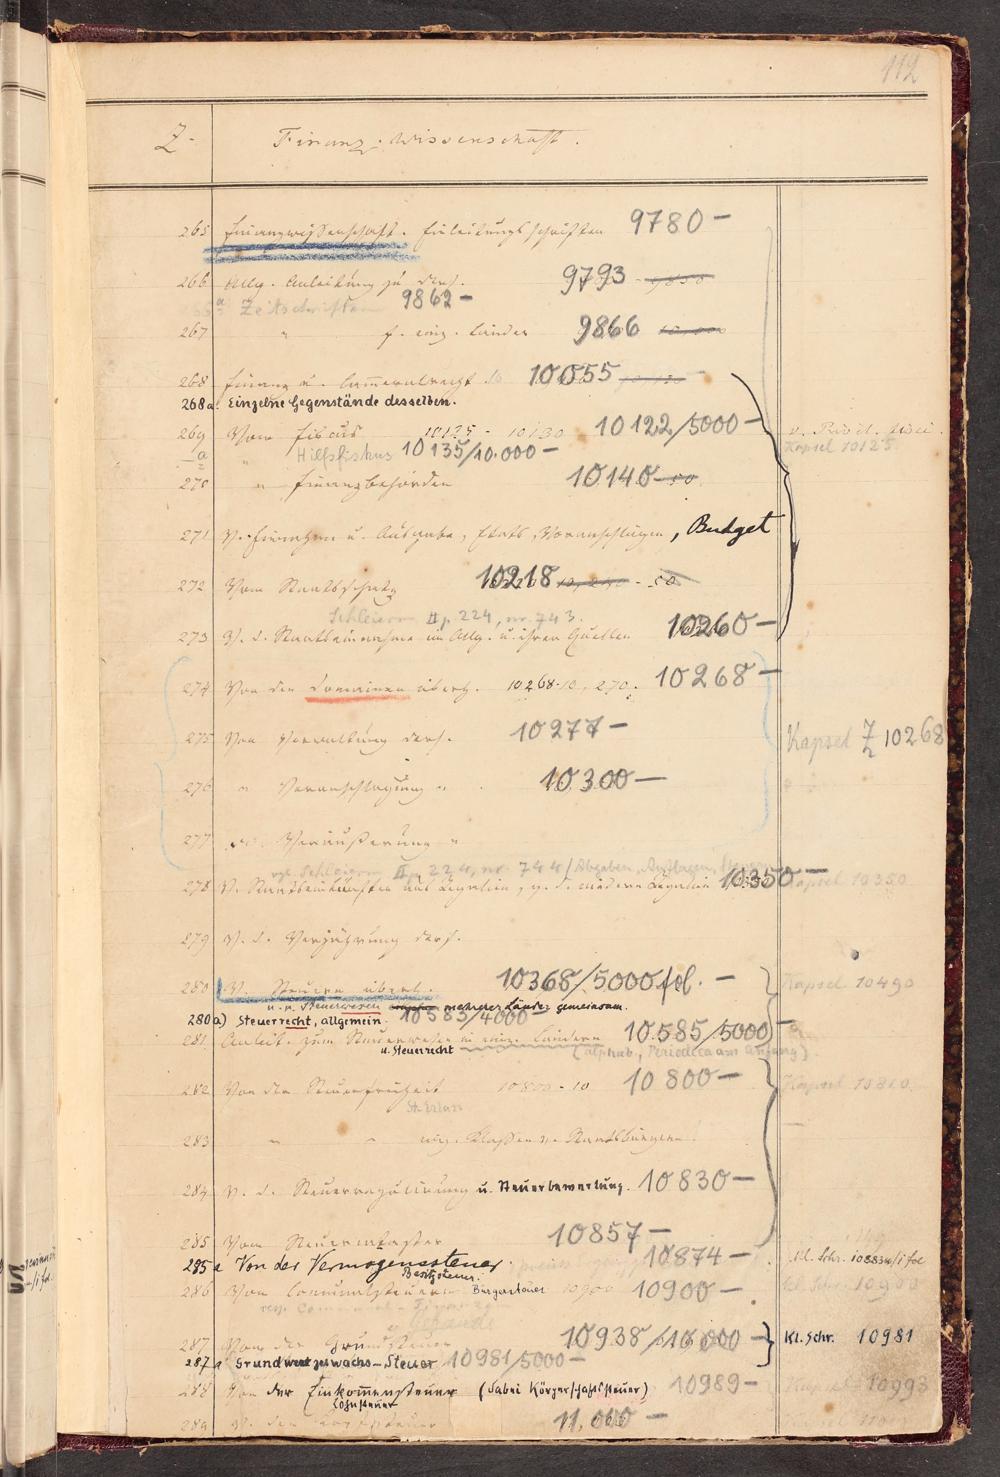 112
Z. Finanz-Wissenschaft.
265 Finanzwissenschaft. Einleitungsschriften 9780 -
266 Allg. Anleitung zu ders. 9793
a Zeitschriften 9862 -
267 " f. einz. Länder 9866
268 Finanz u. Cameralrecht 10055
268a. Einzelne Gegenstände desselben.
269 Vom Fiscus 10125 - 10130 10122/5000 -
Kapsel 10125
a " Hilfsfiskus 10135/10.000 -
270 " Finanzbehörden 10140
271 V. Einnahme u. Ausgabe, Etats, Voranschlägen, Budget
272 Vom Staatsschatz 10218
Schleierm II p. 224, nr. 743.
273 V. d. Staatseinnahme im Allg. u. ihren Quellen 10260 -
274 Von den Domainen überh. 10268-10,270. 10268 -
275 Von Verwaltung ders. 10277 -
Kapsel Z 10268
276 " Veranschlagung " 10300 -
277 Veräußerung "
vgl. Schleierm II, 224, nr. 744 / Abgaben, Auflagen,
278 V. Staatseinkünften aus Regalien, v. d. niedern Regalien 10350 - Kapsel 10350
279 V. d. Verjährung ders.
280 V. Steuern überh. 10368/5000 fol. - Kapsel 10490
mehrerer Länder gemeinsam.
280a) Steuerrecht, allgemein. 10583/4000
281 Anleit. zum Steuerwesen in einz. Ländern 10585/5000
u. Steuerrecht (alphab., Periodica am Anfang)
282 Von der Steuerfreiheit 10800 - 10 10800 - Kapsel 10810
283 " " einz. Klassen v. Staatsbürgern
284 V. d. Steuerregulirung u. Steuerbewertung. 10830 -
285 Vom Steuerkataster 10857 -
285a Von der Vermögenssteuer 10874 - Kl. Schr.
Besitzsteuer.
286 Von Communalsteuern Bürgersteuer 10900 10900 - Kl. Schr. 10900
Gebäude
287 Von der Grundsteuer 10938/10000 - Kl. Schr. 10981
287a Grundwertzuwachs-Steuer 10981/5000 -
288 Von der Einkommensteuer (dabei Körperschaftssteuer) 10989 - Kapsel 10993
Lohnsteuer
289 V. der 11.000 -